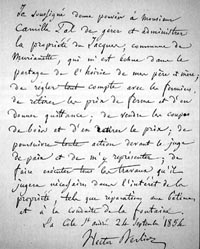 Je soussigné donne pouvoir à monsieur
Camille Pal de gérer et administrer
la propriété du Jacquet, commune de
Murianette, qui m'est échue dans le
partage de l'hoirie de mes père et mère;
de régler tout compte avec les fermiers,
de retirer les prix de ferme et d'en
donner quittance; de vendre les coupes
de bois et d'en retirer le prix; de
poursuivre toute action devant le juge
de paix et de m'y représenter; de
faire exécuter tous les travaux qu'il
jugera nécessaires dans l'intérêt de la
propriété, tels que réparations aux bâtimens
et à la conduite de la fontaine.
La Côte St André 24 Septembre 1854
Hector Berlioz